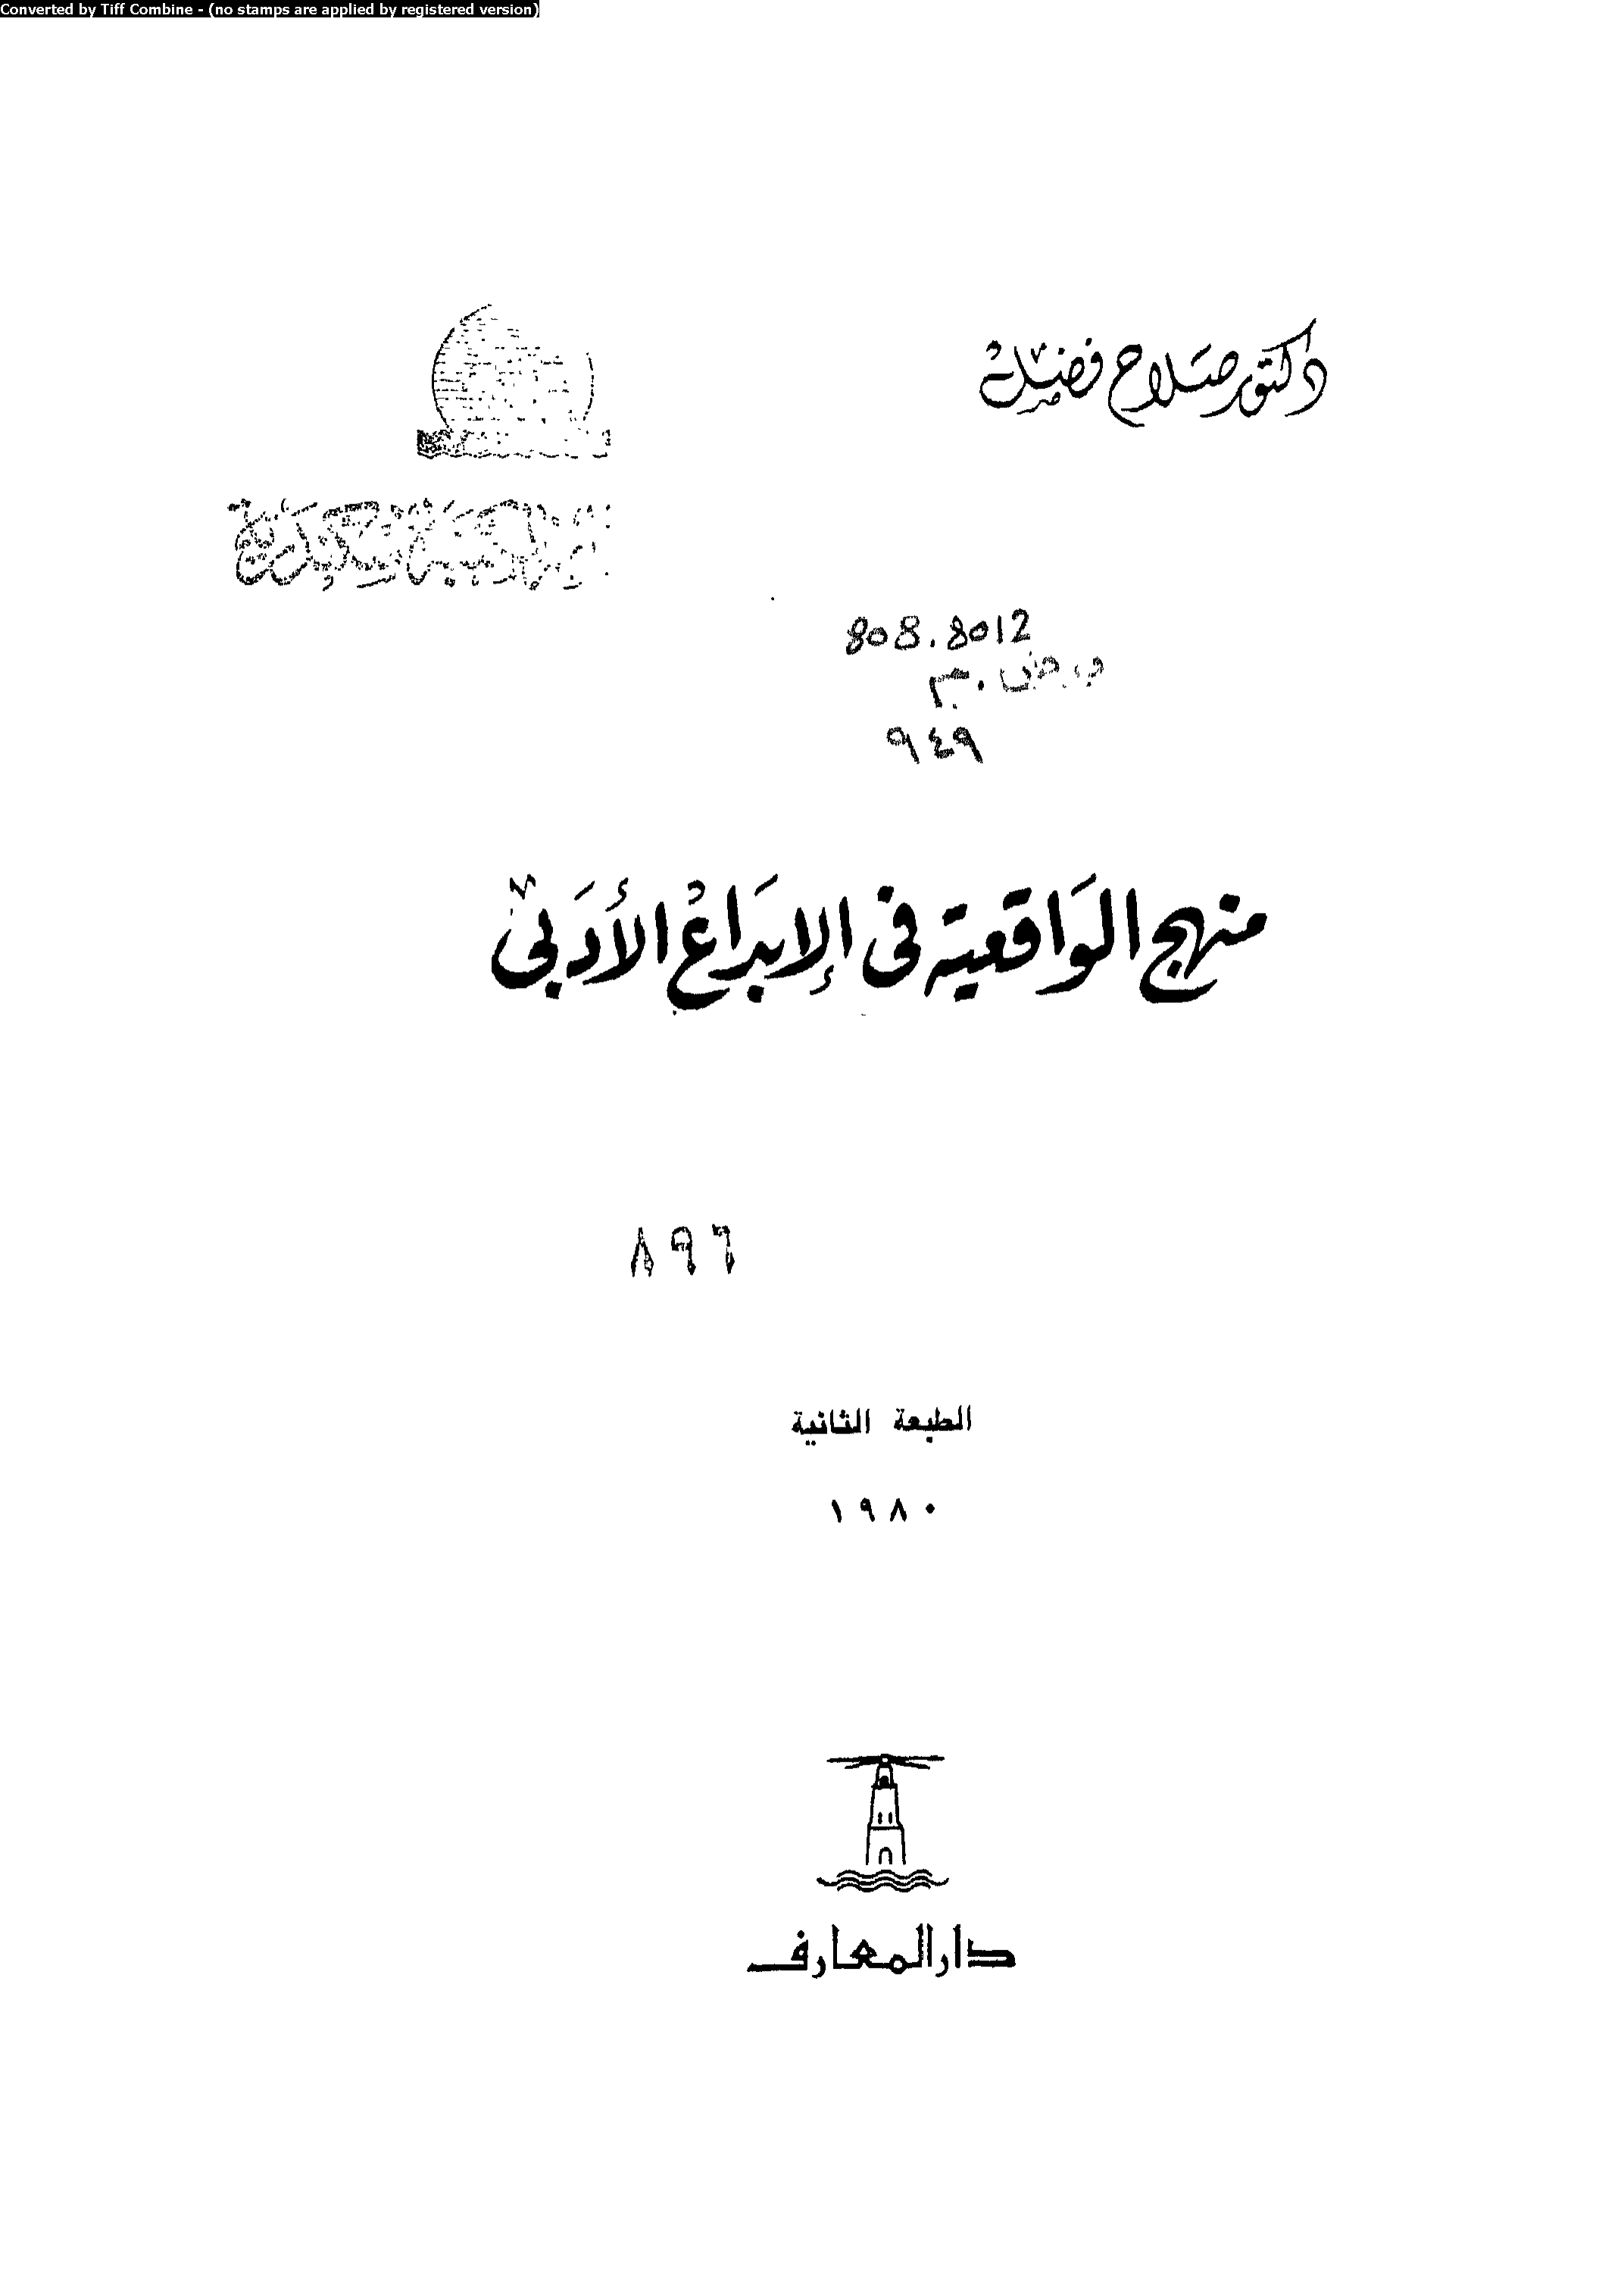 Converted by Tiff Combine - (no stamps are applied by registered version)
دكتور صلاح فضل
808.8012
٩٤٩
منهج الواقعية فى الإبداع الأدبى
٨٩٦
الطبعة الثانية
١٩٨٠
دار المعارف